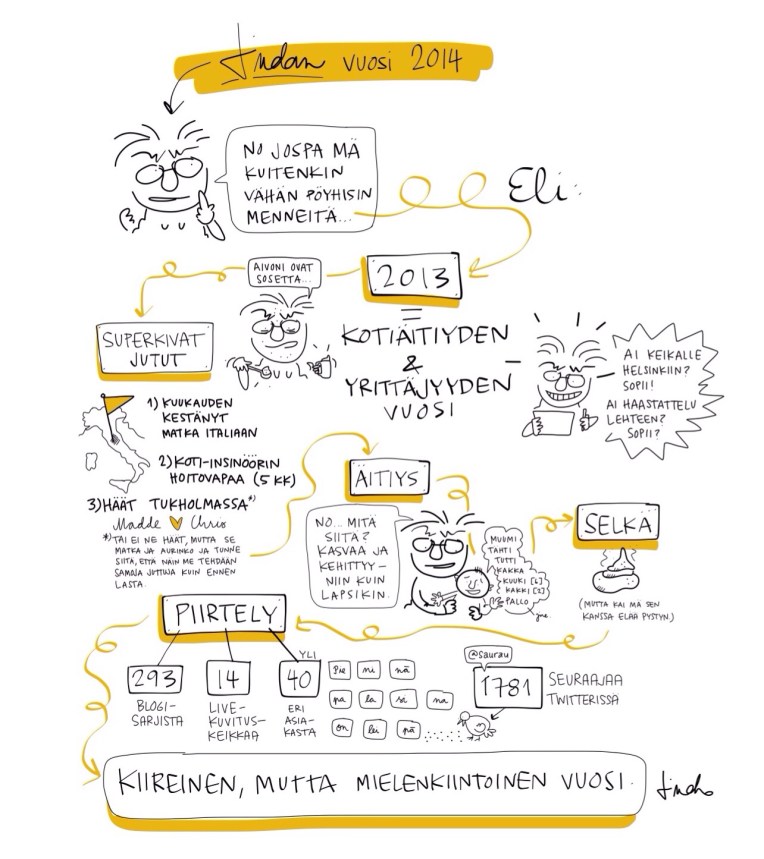 Lindan VUOSI 2014
NO JOSPA MÄ
KUITENKIN
VÄHÄN PÖYHISIN
MENNEITÄ...
Eli:
2013
AIVONI OVAT
SOSETTA...
=
KOTIÄITIYDEN
&
YRITTÄJYYDEN
VUOSI
SUPERKIVAT
JUTUT
AI KEIKALLE
HELSINKIIN?
SOPII!
AI HAASTATTELU
LEHTEEN?
SOPII?
1) KUUKAUDEN
KESTÄNYT
MATKA ITALIAAN
2) KOTI-INSINÖÖRIN
HOITOVAPAA (5 KK)
3) HÄÄT TUKHOLMASSA*)
Madde Chris
*) TAI EI NE HÄÄT, MUTTA SE
MATKA JA AURINKO JA TUNNE
SIITÄ, ETTÄ NÄIN ME TEHDÄÄN
SAMOJA JUTTUJA KUIN ENNEN
LASTA.
ÄITIYS
NO... MITÄ
SIITÄ?
KASVAA JA
KEHITTYY-
NIIN KUIN
LAPSIKIN.
MUUMI
TAHTI
TUTTI
KAKKA
KUUKI [6]
KAKKI [2]
PALLO
jne.
SELKÄ
(MUTTA KAI MÄ SEN
KANSSA ELÄÄ PYSTYN.)
PIIRTELY
293
BLOGI-
SARJISTA
14
LIVE-
KUVITUS-
KEIKKAA
YLI
40
ERI
ASIA-
KASTA
Pie ni nä
pa la si na
on lei pä
@saurau
1781
SEURAAJAA
TWITTERISSÄ
KIIREINEN, MUTTA MIELENKIINTOINEN VUOSI.